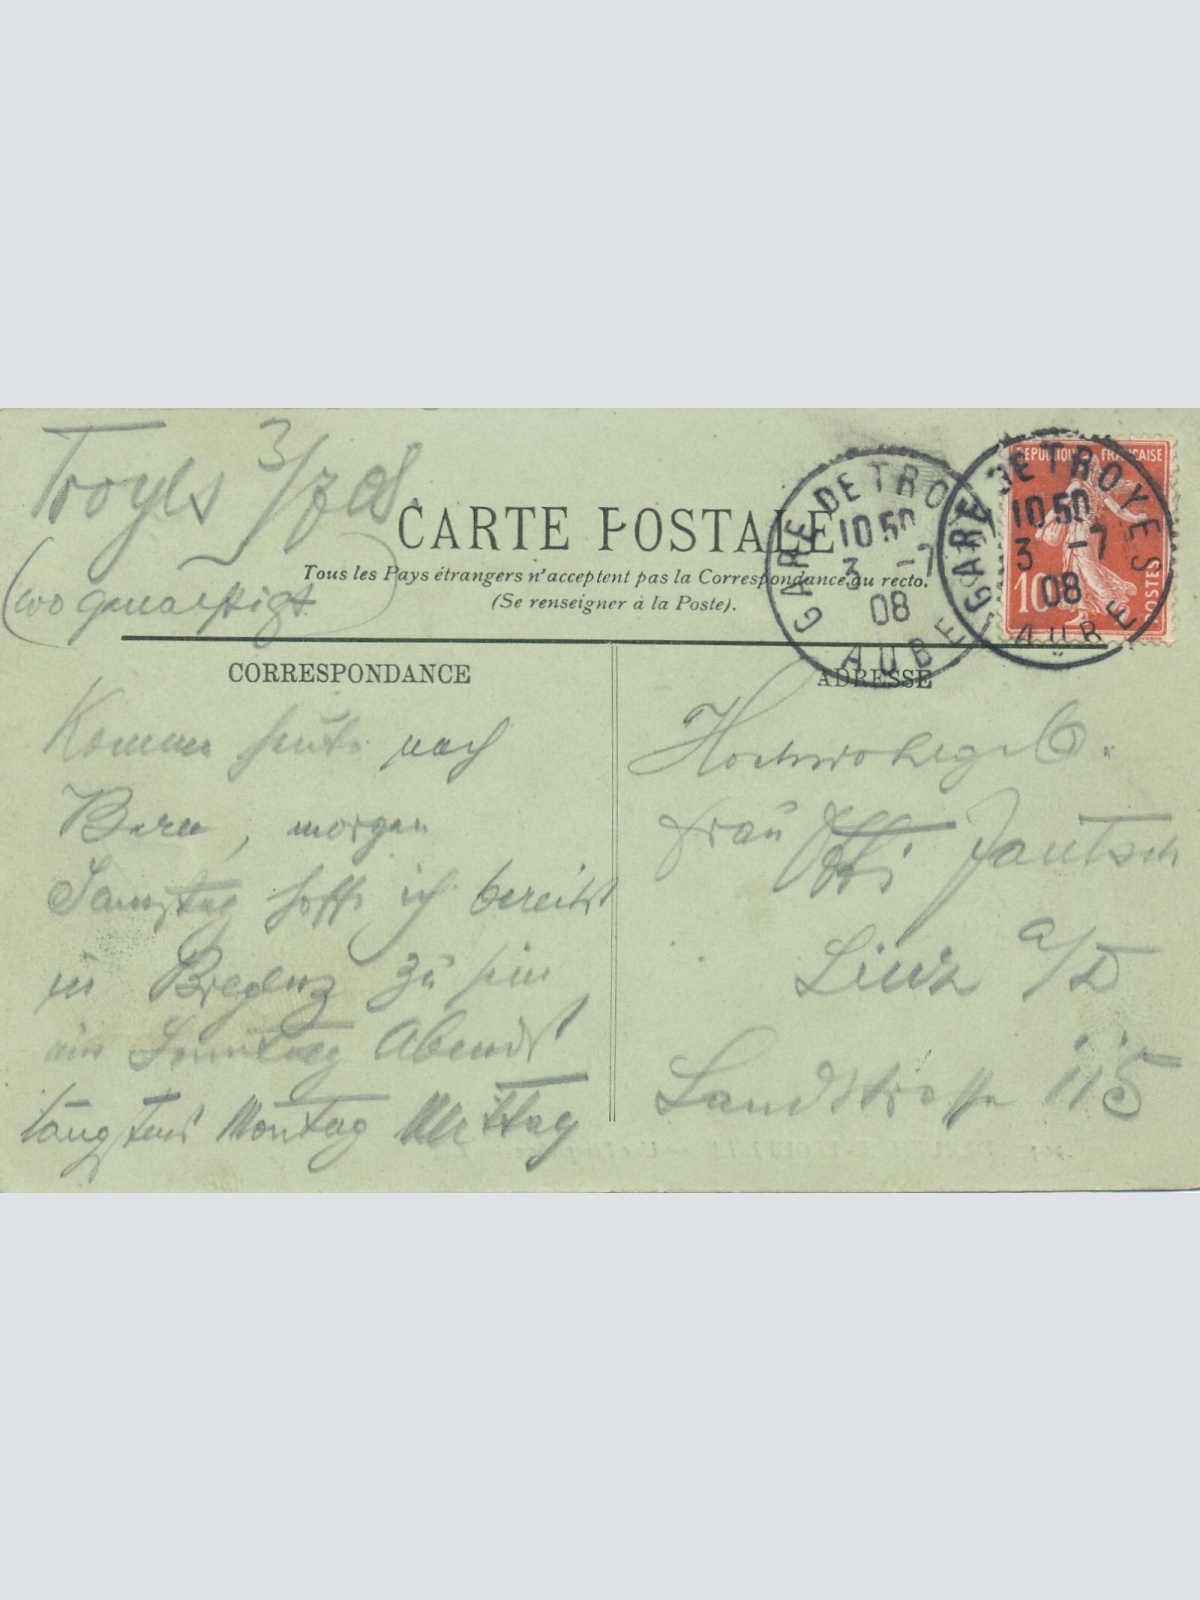 Troyes 3/7 08
CARTE POSTALE
Tous les Pays étrangers n'acceptent pas la Correspondance au recto.
(Se renseigner à la Poste).
(wo
CORRESPONDANCE
Komme heute nach
Bern, morgen
Samstag hoffe ich bereits
in Bregenz zu sein
Sonntag Abends
längstens Montag Mittag
ADRESSE
Hochwohlgeb.
Frau Jantsch
Linz a/D
Landstrasse 115
GARE DE TROYES
10 50
3 -7
08
AUBE
GARE DE TROYES
10 50
3 -7
08
AUBE
REPUBLIQUE FRANÇAISE
10
POSTES